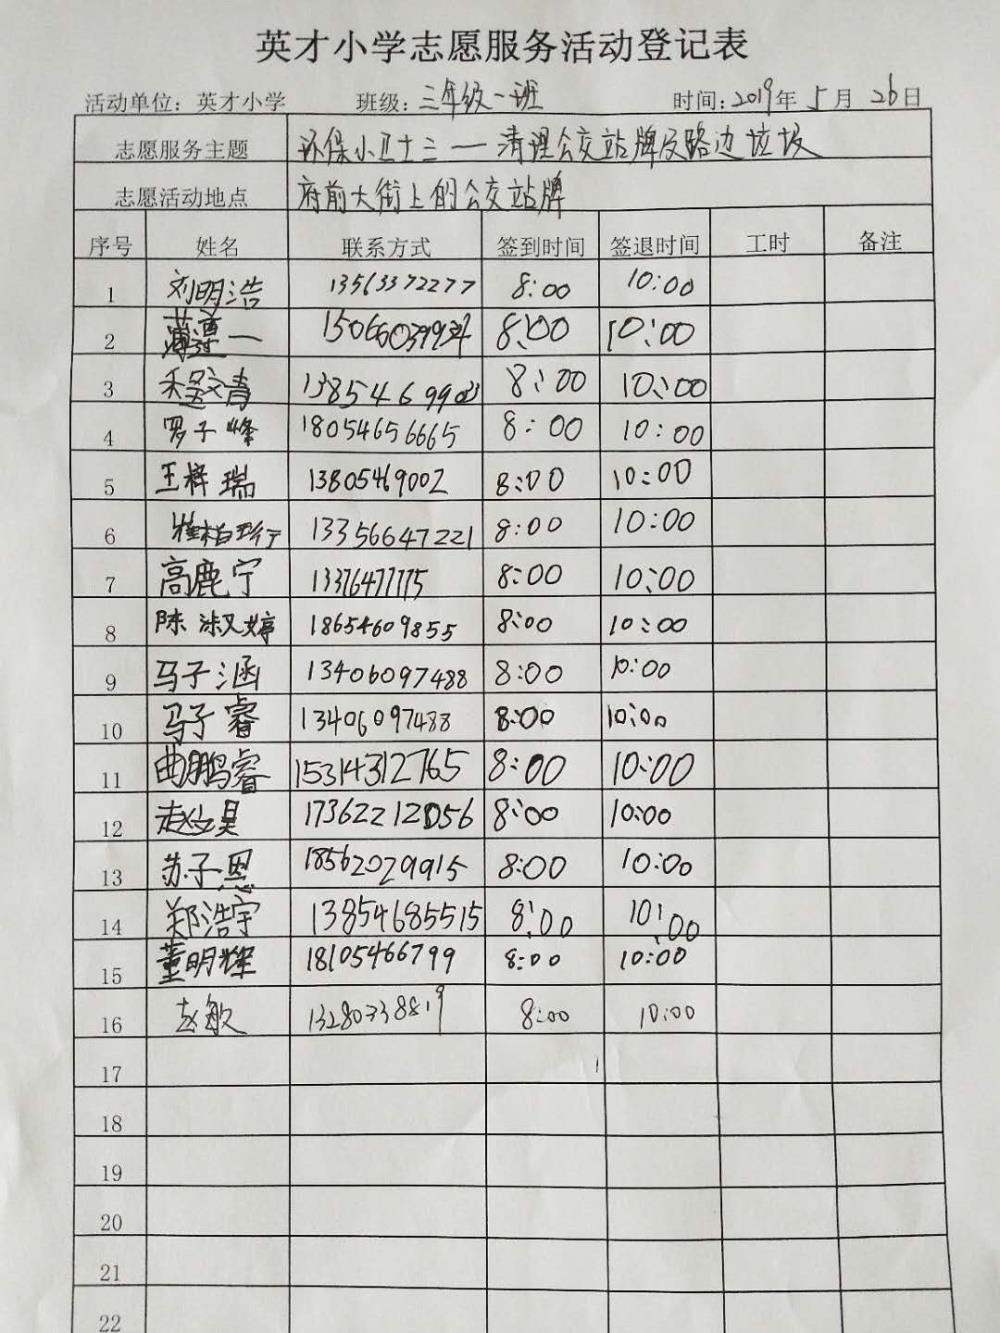 英才小学志愿服务活动登记表
活动单位：英才小学 班级：三年级一班 时间：2019年5月26日
志愿服务主题 环保小卫士三一清理公交站牌及路边垃圾
志愿活动地点 府前大街上的公交站牌
序号 姓名 联系方式 签到时间 签退时间 工时 备注
1 刘明浩 13563372277 8:00 10:00
2 8:00 10:00
3 8:00 10:00
4 罗子烽 18054656665 8:00 10:00
5 王梓瑞 13805469002 8:00 10:00
6 13356647221 8:00 10:00
7 高鹿宁 13376477775 8:00 10:00
8 陈淑婷 18654609855 8:00 10:00
9 马子涵 13406097488 8:00 10:00
10 马子睿 13406097488 8:00 10:00
11 曲鹏睿 15314312765 8:00 10:00
12 赵文昊 17362212056 8:00 10:00
13 苏子恩 18562029915 8:00 10:00
14 郑浩宇 13854685515 8:00 10:00
15 董明辉 18105466799 8:00 10:00
16 赵敏 13280338819 8:00 10:00
17
18
19
20
21
22